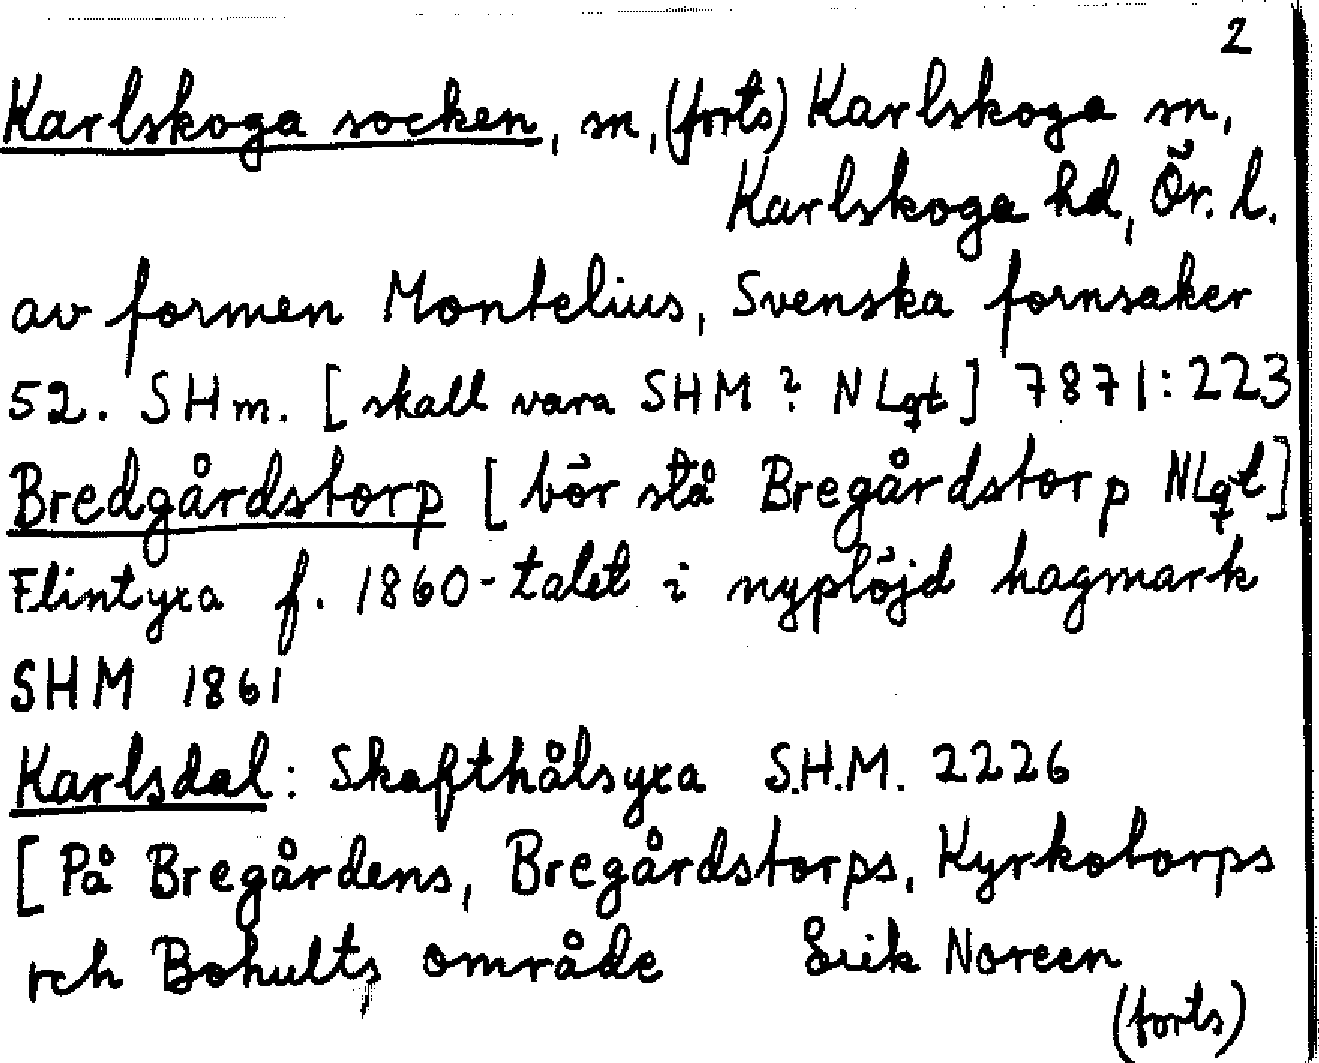 2
Karlskoga socken, sn, (forts) Karlskoga sn,
Karlskoga hd, Ör. l.
av formen Montelius, Svenska fornsaker
52. SHm. [skall vara SHM? NLgt] 7871:223
Bredgårdstorp [bör stå Bregårdstorp NLgt]
Flintyxa f. 1860-talet i nyplöjd hagmark
SHM 1861
Karlsdal: Skafthålsyxa S.H.M. 2226
[På Bregårdens, Bregårdstorps, Kyrkotorps
och Bohults område Erik Noreen
(forts)